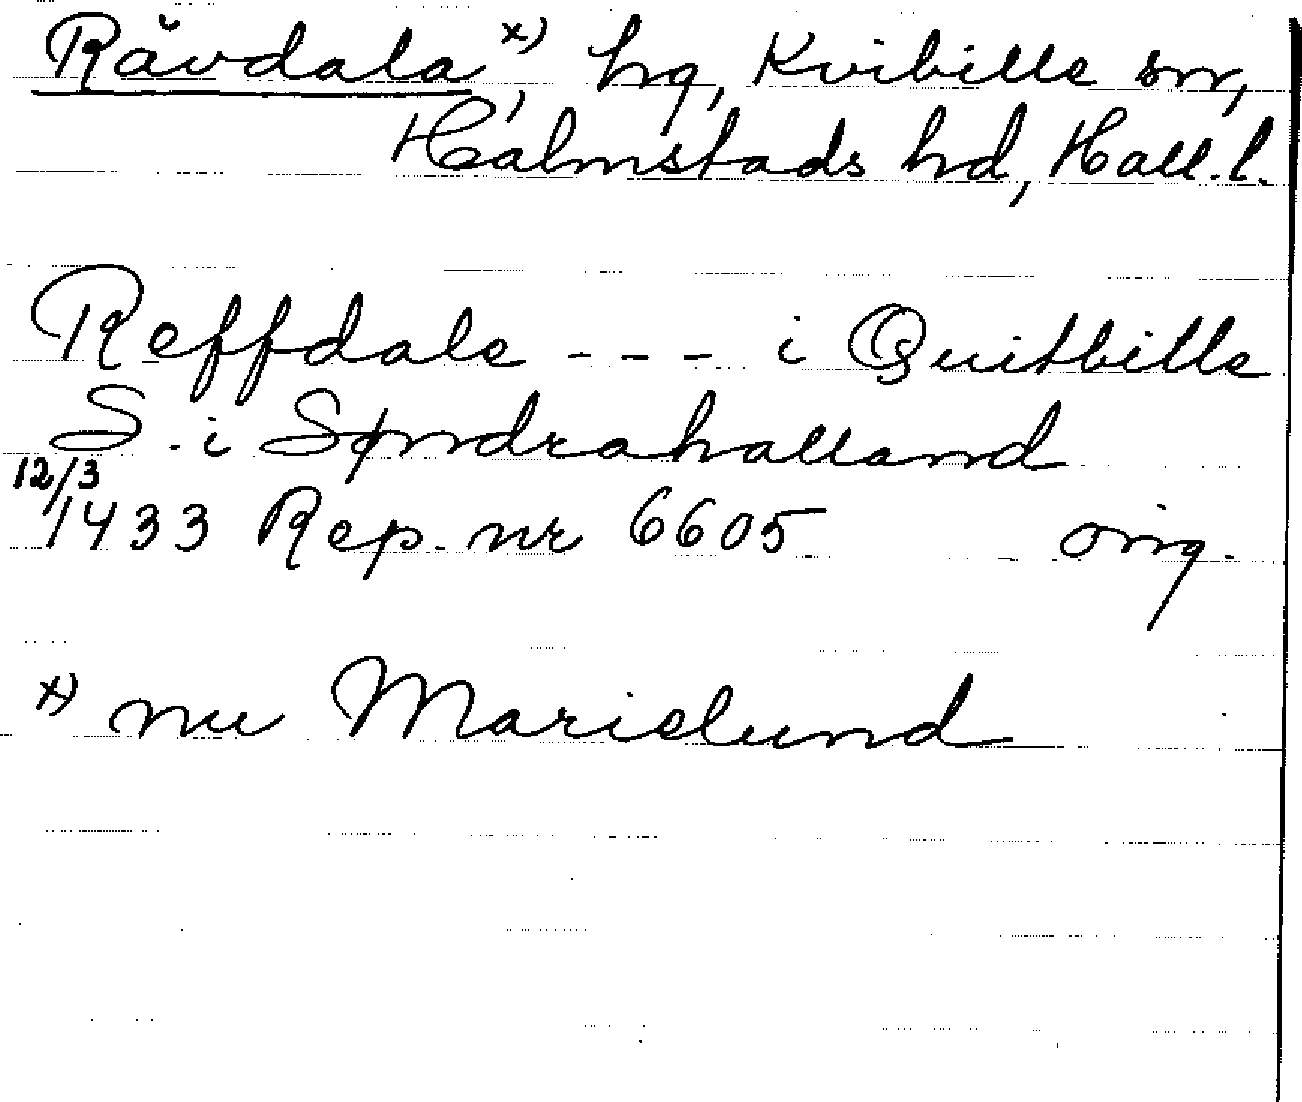 Rävdala x), hg, Kvibille sn,
Halmstads hd, Hall. l.
Reffdale - - - i Quitbille
S. i Sømdrahalland
12/3
1433 Rep. nr 6605 orig.
x) nu Marielund